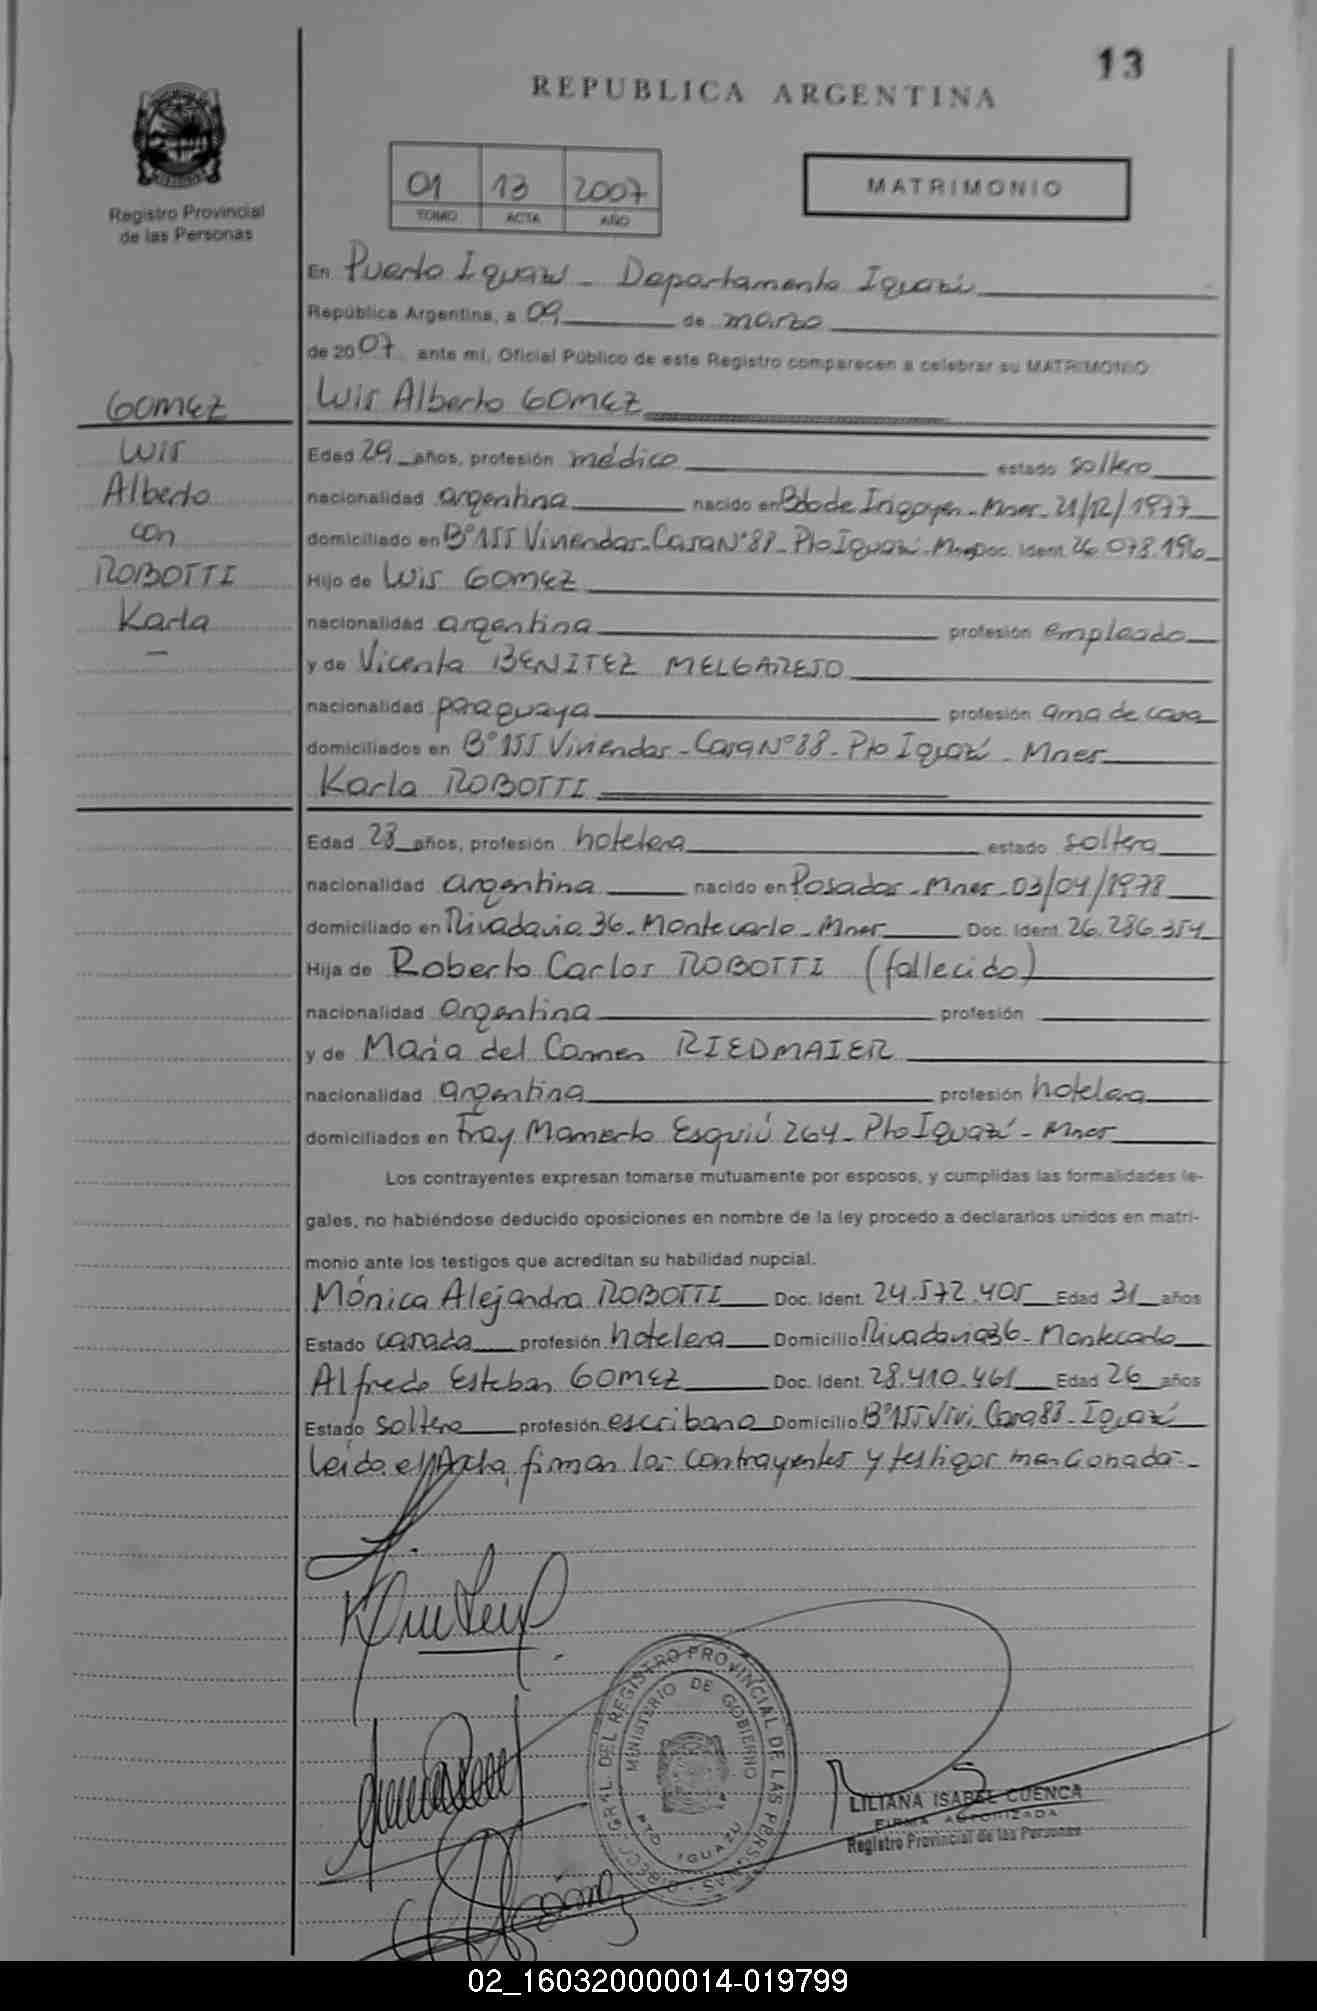 13
REPUBLICA ARGENTINA
Registro Provincial
de las Personas
01 13 2007
TOMO ACTA AÑO
MATRIMONIO
En Puerto Iguazú - Departamento Iguazú
República Argentina, a 09 de marzo
de 2007 ante mí, Oficial Público de este Registro comparecen a celebrar su MATRIMONIO
GOMEZ
Luis
Alberto
con
ROBOTTI
Karla
Luis Alberto GOMEZ
Edad 29 años, profesión médico estado soltero
nacionalidad argentina nacido en Bdo de Irigoyen - Mnes - 21/12/1977
domiciliado en B° 155 Viviendas - Casa N° 88 - Pto Iguazú - Mnes Doc. Ident. 26.078.196
Hijo de Luis GOMEZ
nacionalidad argentina profesión empleado
y de Vicenta BENITEZ MELGAREJO
nacionalidad paraguaya profesión ama de casa
domiciliados en B° 155 Viviendas - Casa N° 88 - Pto Iguazú - Mnes
Karla ROBOTTI
Edad 28 años, profesión hotelera estado soltera
nacionalidad argentina nacido en Posadas - Mnes - 03/04/1978
domiciliado en Rivadavia 36 - Montecarlo - Mnes Doc. Ident. 26.286.354
Hija de Roberto Carlos ROBOTTI (fallecido)
nacionalidad argentina profesión
y de María del Carmen RIEDMAIER
nacionalidad argentina profesión hotelera
domiciliados en Fray Mamerto Esquiú 264 - Pto Iguazú - Mnes
Los contrayentes expresan tomarse mutuamente por esposos, y cumplidas las formalidades le-
gales, no habiéndose deducido oposiciones en nombre de la ley procedo a declararlos unidos en matri-
monio ante los testigos que acreditan su habilidad nupcial.
Mónica Alejandra ROBOTTI Doc. Ident. 24.572.405 Edad 31 años
Estado casada profesión hotelera Domicilio Rivadavia 36 - Montecarlo
Alfredo Esteban GOMEZ Doc. Ident. 28.410.461 Edad 26 años
Estado soltero profesión escribano Domicilio B° 155 Vivi. Casa 88 - Iguazú
Leída el Acta, firman los contrayentes y testigos mencionados -
DIRECC. GRAL. DEL REGISTRO PROVINCIAL DE LAS PERSONAS
MINISTERIO DE GOBIERNO
PTO. IGUAZU
LILIANA ISABEL CUENCA
FIRMA AUTORIZADA
Registro Provincial de las Personas
02_160320000014-019799